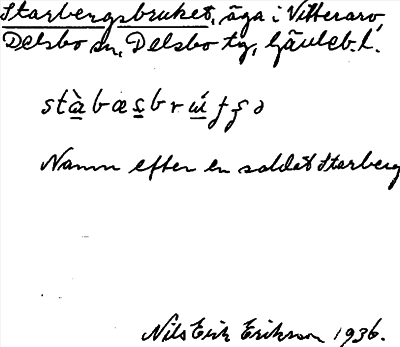 Starbergsbruket, äga i Vitterarv,
Delsbo sn, Delsbo tg, Gävleb. l.
Namn efter en soldat Starberg
Nils Erik Erikson 1936.